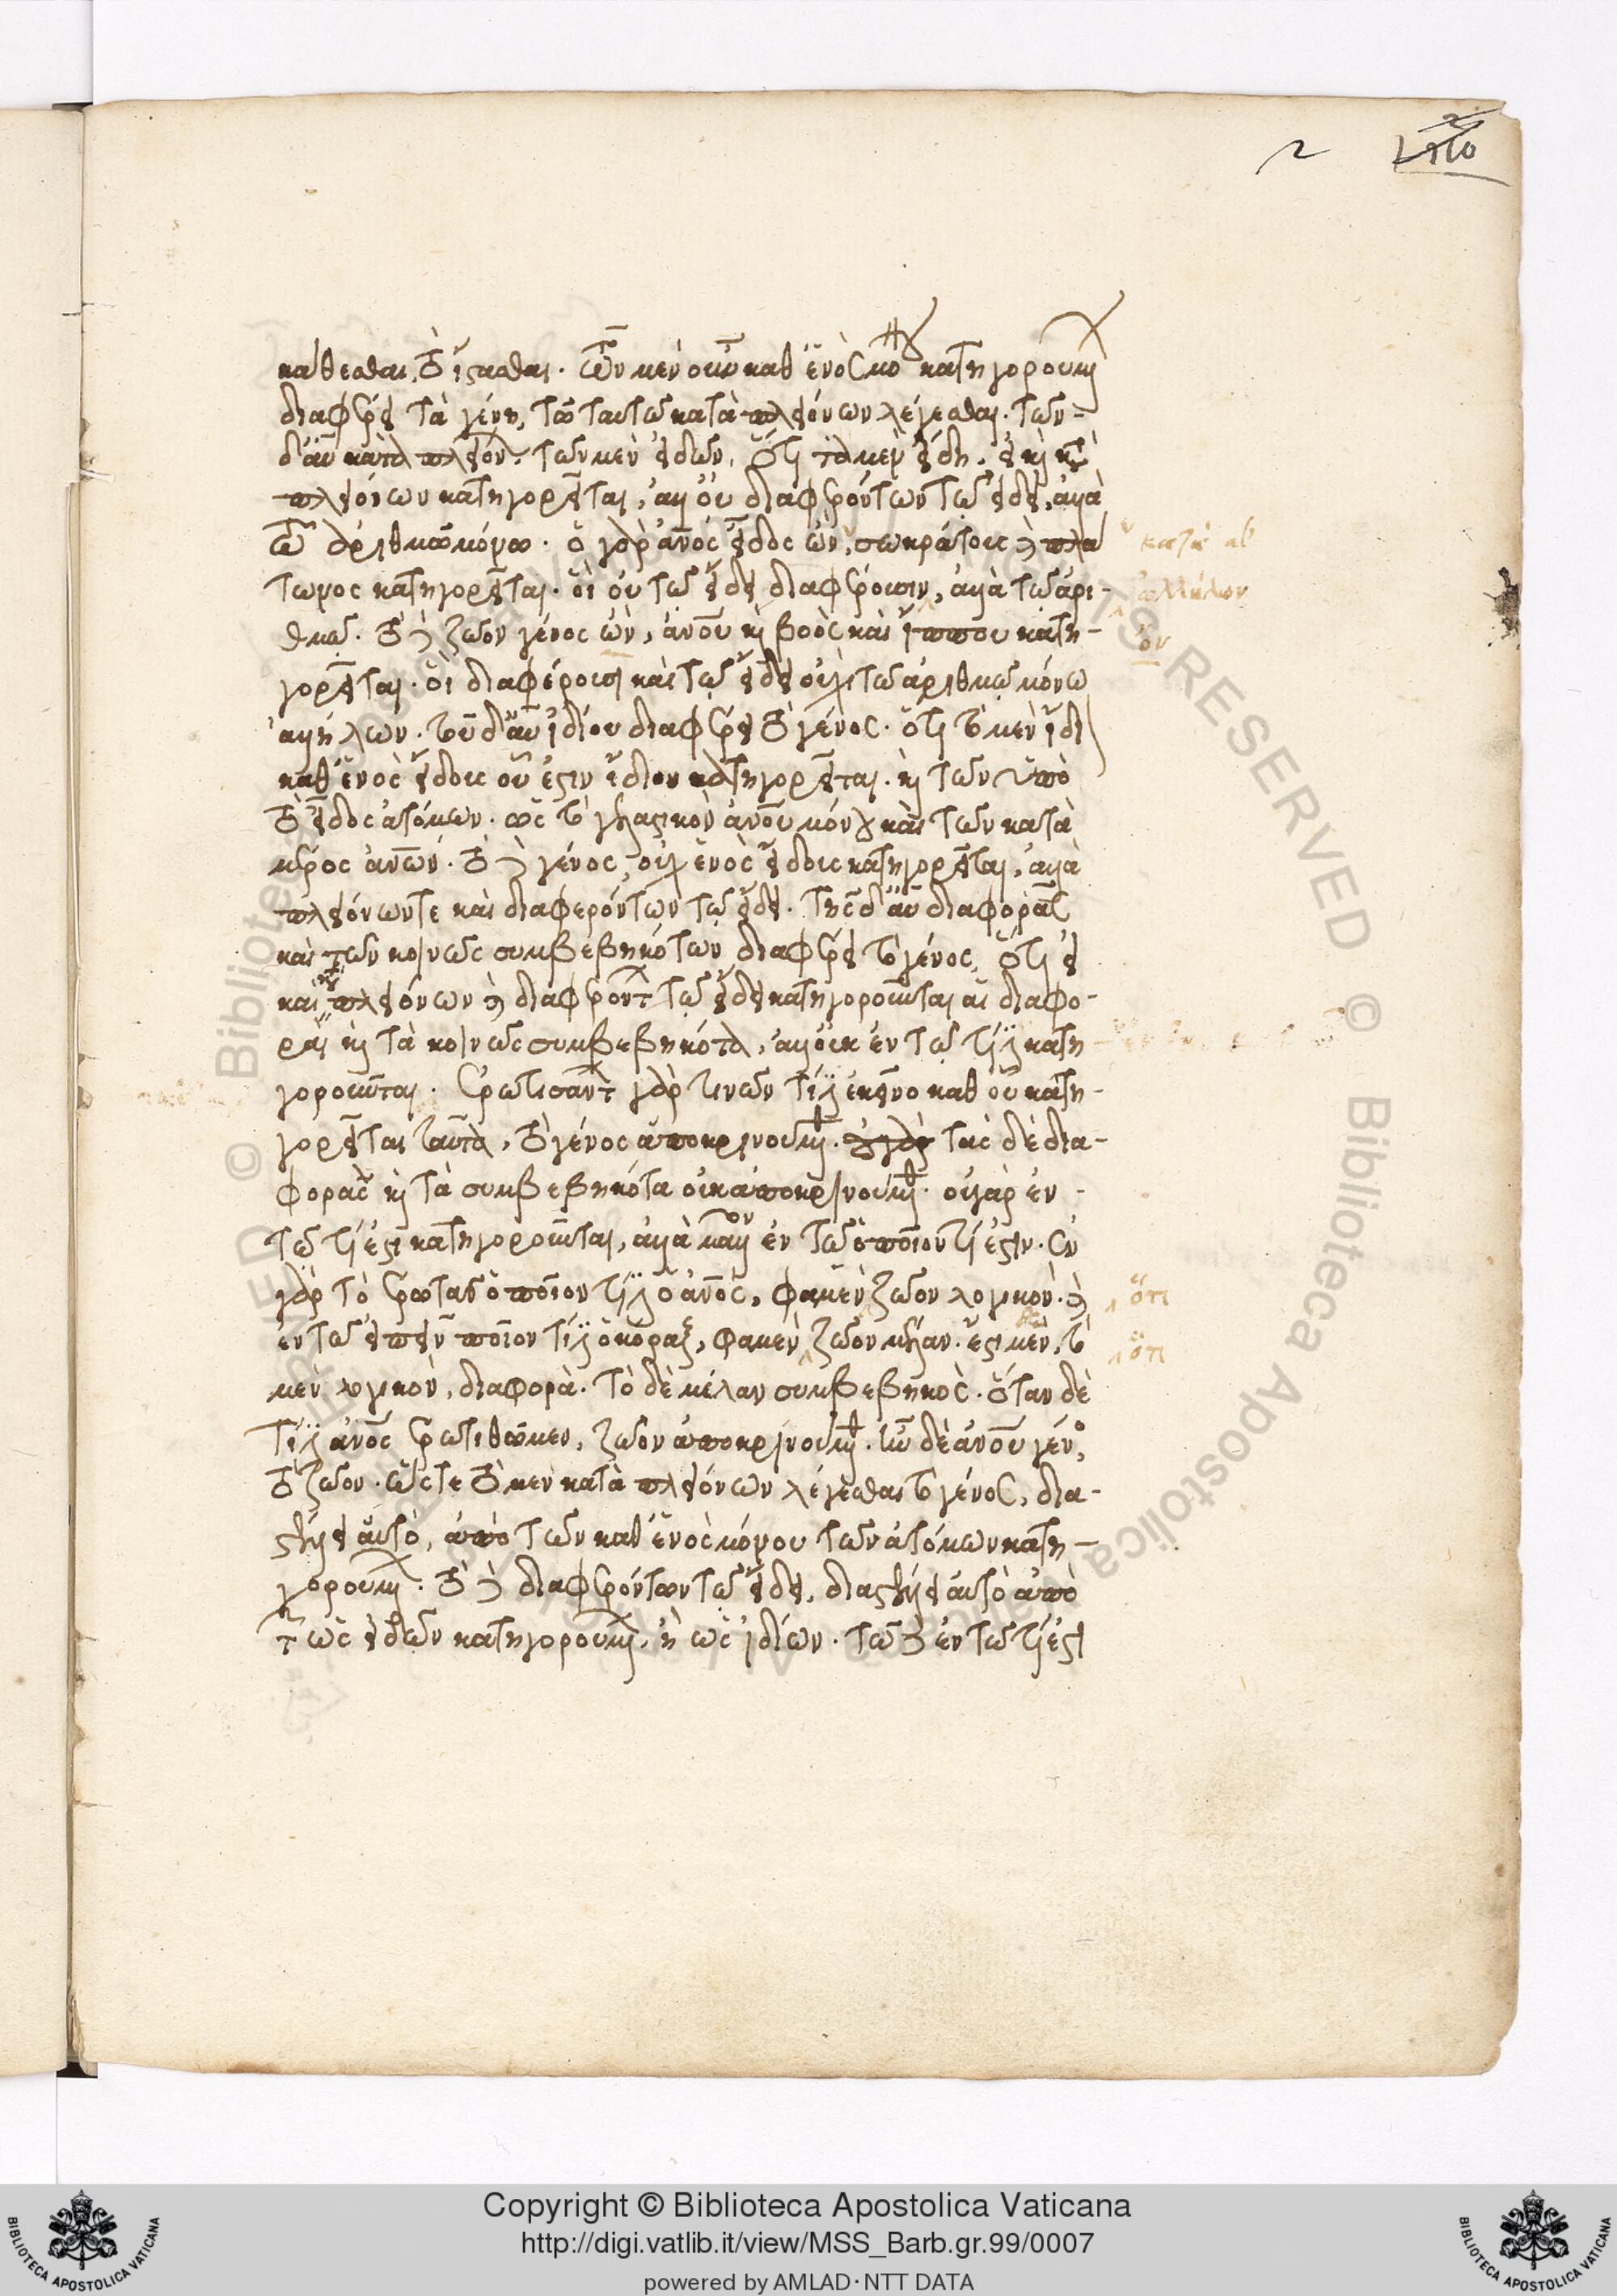 2
καθεσθαι, τὸ ἵστασθαι. τῶν μὲν οὖν καθ ἑνὸς μόνου κατηγορουμένων
διαφέρει τὰ γένη, τῶ ταῦτα κατὰ πλειόνων λέγεσθαι. τῶν
δ' αὖ κατὰ πλειόνων, τῶν μὲν εἰδῶν, ὅτι τὰ μὲν εἴδη, εἰ καὶ κατὰ
πλειόνων κατηγορεῖται, ἀλλ' οὐ διαφερόντων τῶ εἴδει, ἀλλὰ
τῶ ἀριθμῶ μόνω. ὁ γὰρ ἄνος εἶδος ὢν, σωκράτους καὶ πλά
τωνος κατηγορεῖται. οἳ οὐ τῶ εἴδει διαφέρουσιν, ἀλλὰ τῶ ἀρι-
θμῶ. τὸ δὲ ζῶον γένος ὢν, ἀνου καὶ βοὸς καὶ ἵππου κατη-
γορεῖται. οἳ διαφέρουσι καὶ τῶ εἴδει οὐχὶ τῶ ἀριθμῶ μόνω
ἀλλήλων. τοῦ δ' αὖ ἰδίου διαφέρει τὸ γένος. ὅτι τὸ μὲν ἴδιον
καθ ἑνὸς εἴδους οὗ ἐστιν ἴδιον κατηγορεῖται. καὶ τῶν ὑπὸ
τὸ εἶδος ἀτόμων. ὡς τὸ γελαστικὸν ἀνου μόνου καὶ τῶν κατὰ
μέρος ἀνων. τὸ δὲ γένος, οὐχ ἑνὸς εἴδους κατηγορεῖται, ἀλλὰ
πλειόνων τε καὶ διαφερόντων τῶ εἴδει. τῆς δ' αὖ διαφορᾶς
καὶ τῶν κοινῶς συμβεβηκότων διαφέρει τὸ γένος, ὅτι εἰ
καὶ κατὰ πλειόνων καὶ διαφερόντων τῶ εἴδει κατηγοροῦνται αἱ διαφο-
ραὶ καὶ τὰ κοινῶς συμβεβηκότα, ἀλλ' οὐκ ἐν τῶ τί ἐστι κατη
γοροῦνται. ἐρωτησάντων γὰρ τινῶν τί ἐστι ἐκεῖνο καθ οὗ κατη-
γορεῖται ταῦτα, τὸ γένος ἀποκρινούμεθα. τὰς δὲ δια-
φορὰς καὶ τὰ συμβεβηκότα οὐκ ἀποκρινούμεθα. οὐ γὰρ ἐν
τῶ τί ἐστι κατηγοροῦνται, ἀλλὰ μᾶλλον ἐν τῶ ὁποῖον τί ἐστιν. ἐν
γὰρ τὸ ἐρωτᾶν ὁποῖον τί ἐστι ὁ ἄνος, φαμὲν ζῶον λογικὸν. καὶ
ἐν τῶ εἰπεῖν ποῖον τί ἐστι ὁ κόραξ, φαμὲν ζῶον μέλαν. ἔστι μὲν, τὸ
μὲν λογικὸν, διαφορὰ. τὸ δὲ μέλαν συμβεβηκὸς. ὅταν δὲ
τί ἐστι ἄνος ἐρωτηθῶμεν, ζῶον ἀποκρινούμεθα. ἦν δὲ ἀνου γένος,
τὸ ζῶον. ὥστε τὸ μὲν κατὰ πλειόνων λέγεσθαι τὸ γένος, δια-
στέλλει αὐτὸ, ἀπὸ τῶν καθ ἑνὸς μόνου τῶν ἀτόμων κατη-
γορουμένων. τὸ δὲ διαφερόντων τῶ εἴδει, διαστέλλει αὐτὸ ἀπὸ
τῶν ὡς εἰδῶν κατηγορουμένων, ἢ ὡς ἰδίων. τῶ δὲ ἐν τῶ τί ἐστι
ἀλλήλων
ὃν
ὅτι
ὅτι
Copyright © Biblioteca Apostolica Vaticana
http://digi.vatlib.it/view/MSS_Barb.gr.99/0007
powered by AMLAD · NTT DATA
BIBLIOTECA APOSTOLICA VATICANA
BIBLIOTECA APOSTOLICA VATICANA